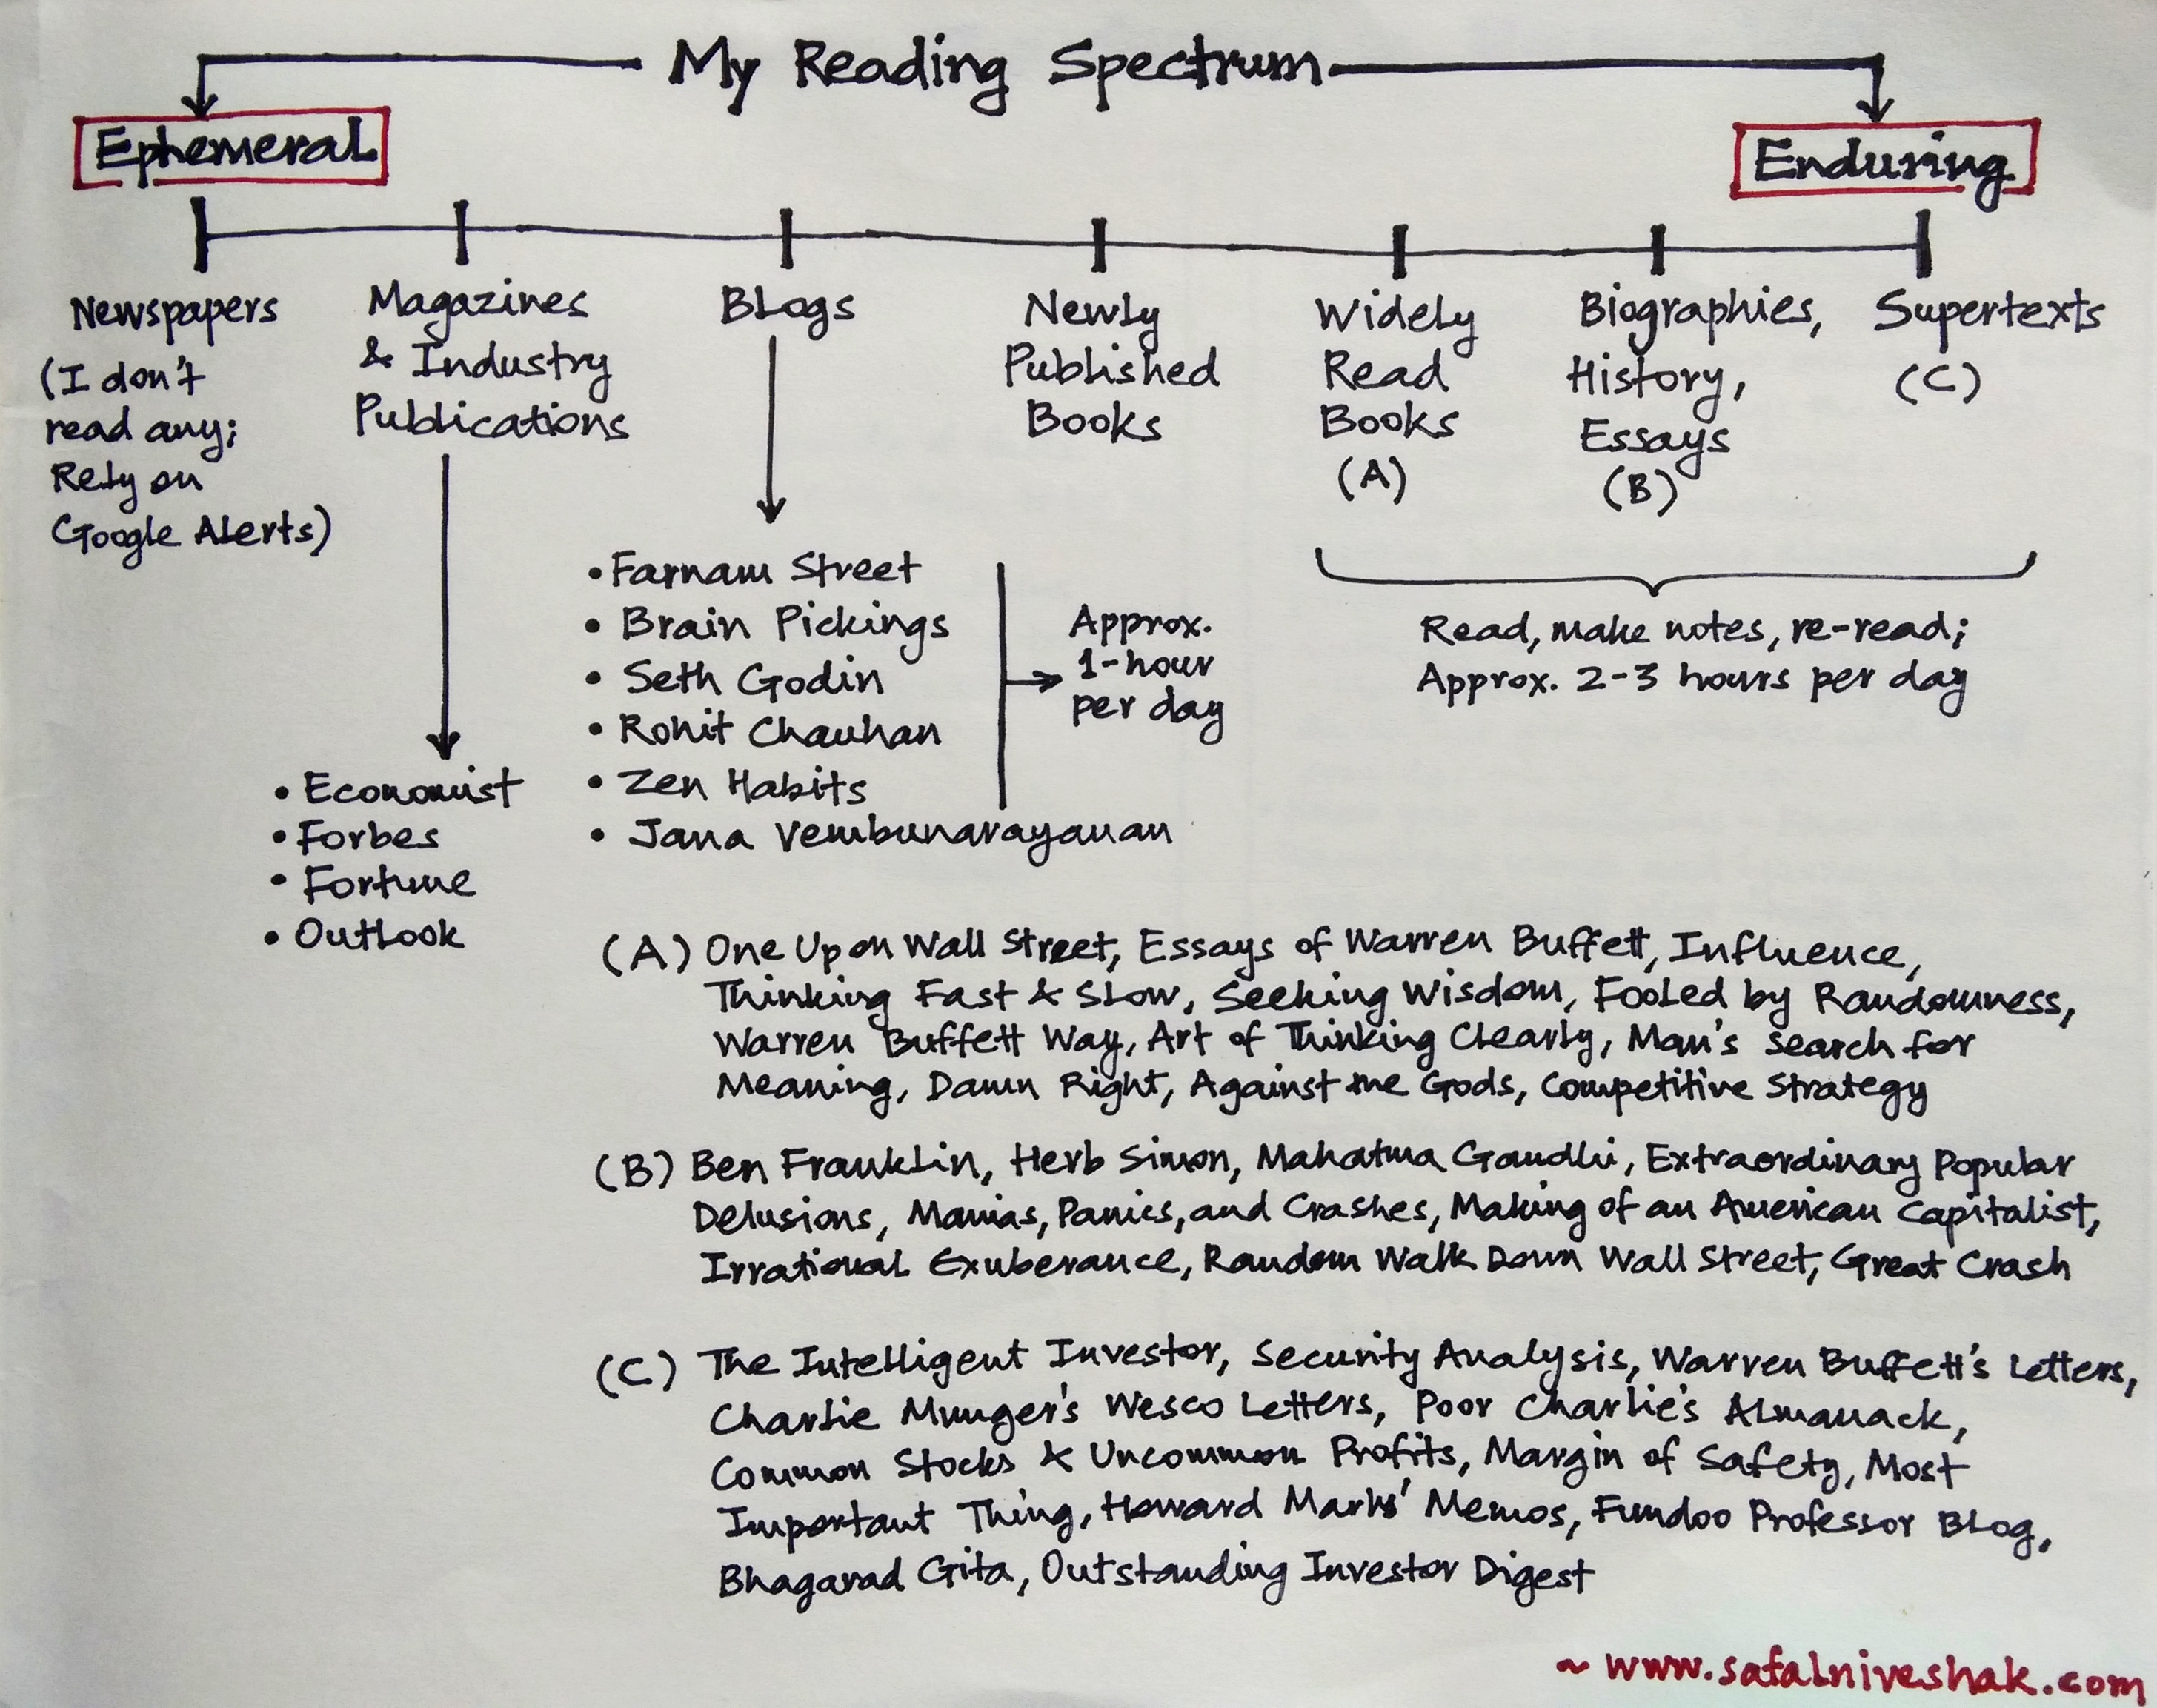 My Reading Spectrum
Ephemeral
Enduring
Newspapers
(I don't
read any;
Rely on
Google Alerts)
Magazines
& Industry
Publications
• Economist
• Forbes
• Fortune
• Outlook
Blogs
• Farnam Street
• Brain Pickings
• Seth Godin
• Rohit Chauhan
• Zen Habits
• Jana Vembunarayanan
Approx.
1-hour
per day
Newly
Published
Books
Widely
Read
Books
(A)
Biographies,
History,
Essays
(B)
Supertexts
(C)
Read, make notes, re-read;
Approx. 2-3 hours per day
(A) One Up on Wall Street, Essays of Warren Buffett, Influence,
Thinking Fast & Slow, Seeking Wisdom, Fooled by Randomness,
Warren Buffett Way, Art of Thinking Clearly, Man's search for
Meaning, Damn Right, Against the Gods, Competitive Strategy
(B) Ben Franklin, Herb Simon, Mahatma Gandhi, Extraordinary Popular
Delusions, Manias, Panics, and Crashes, Making of an American Capitalist,
Irrational Exuberance, Random Walk Down Wall Street, Great Crash
(C) The Intelligent Investor, Security Analysis, Warren Buffett's Letters,
Charlie Munger's Wesco Letters, Poor Charlie's Almanack,
Common Stocks & Uncommon Profits, Margin of Safety, Most
Important Thing, Howard Marks' Memos, Fundoo Professor Blog,
Bhagavad Gita, Outstanding Investor Digest
~ www.safalniveshak.com